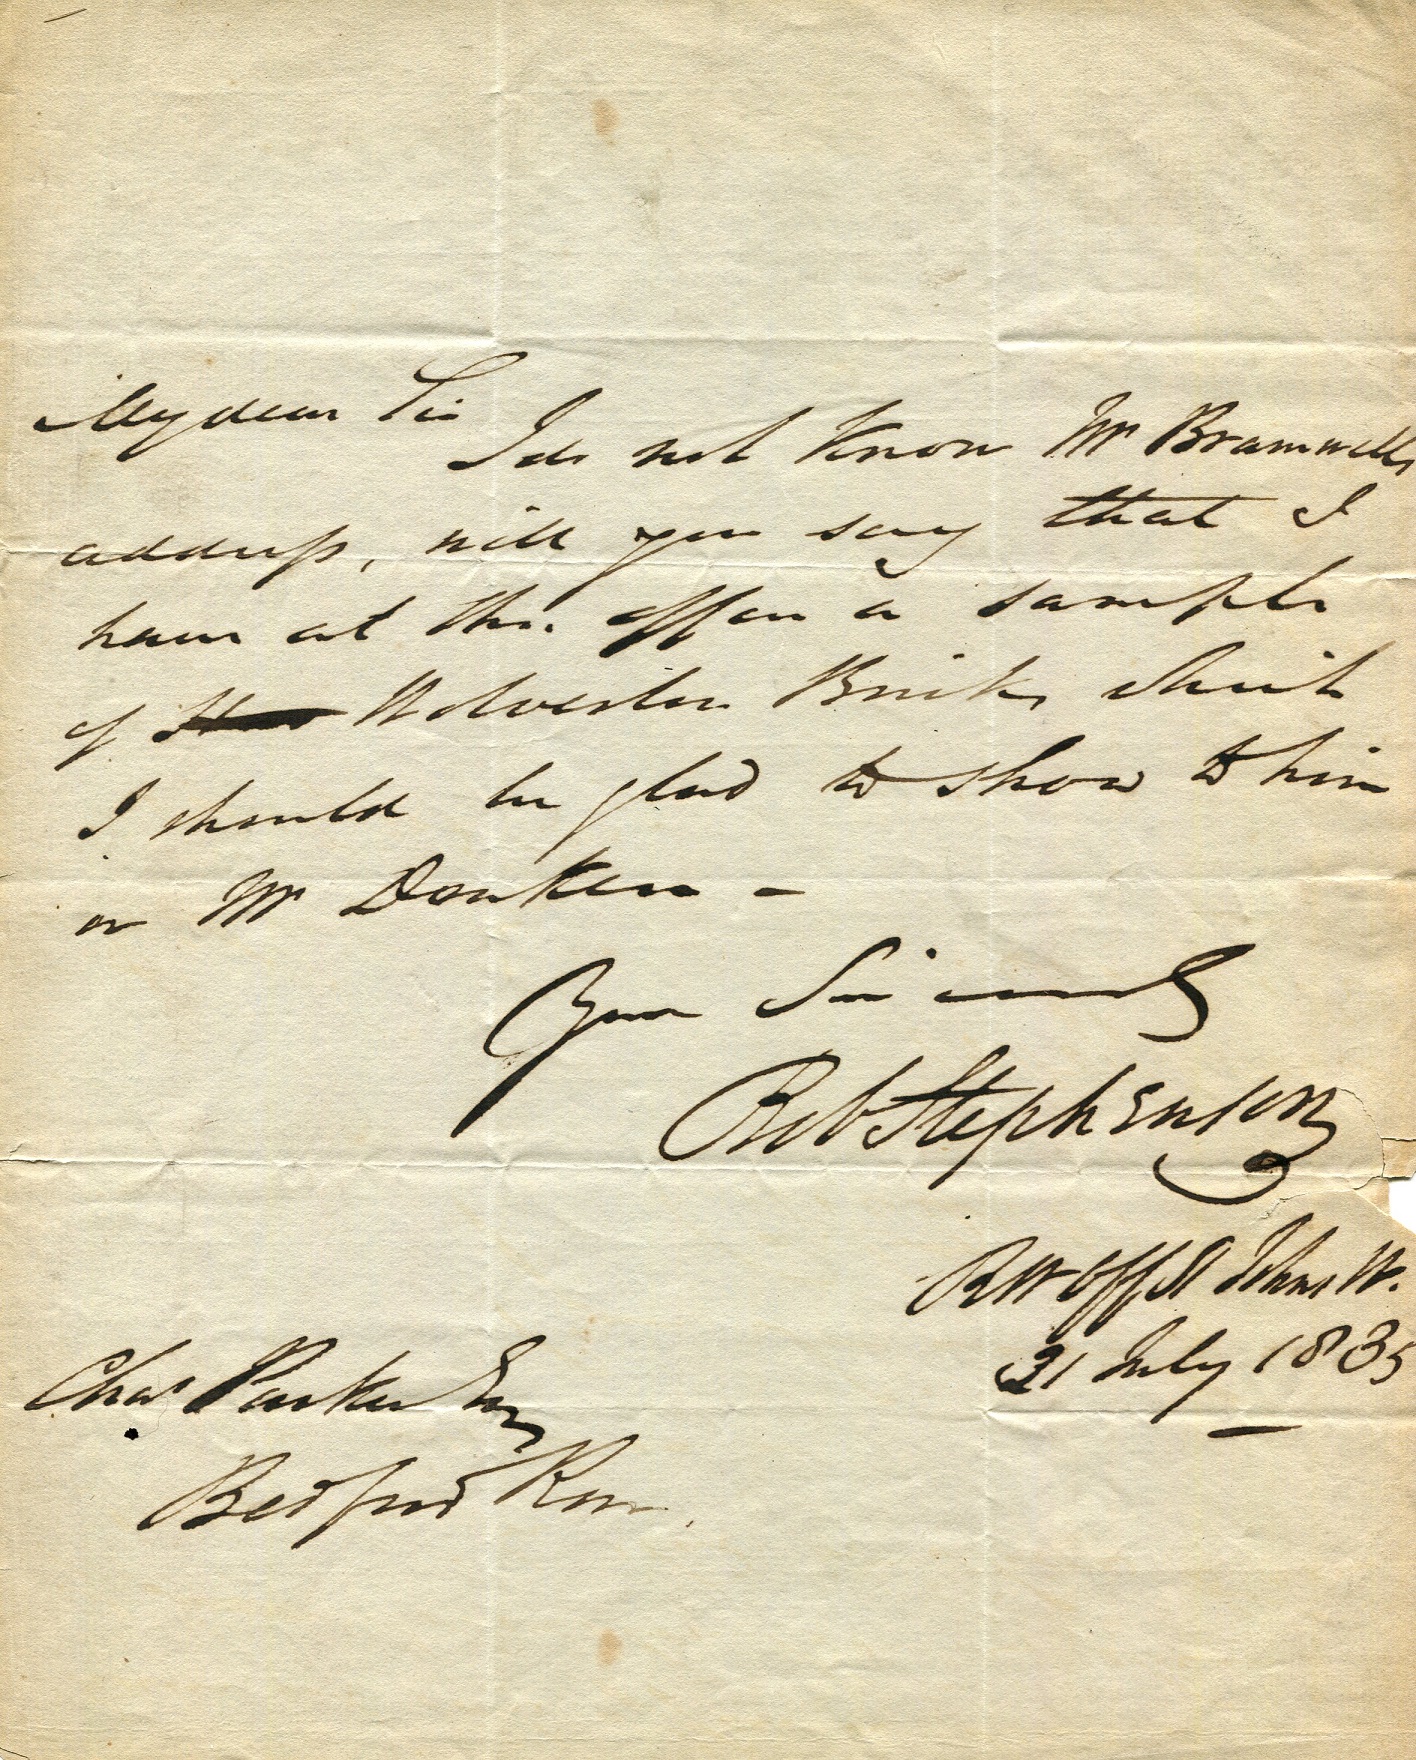 My dear Sir
I do not know Mr Bramwells
address, will you say that I
have at this office a sample
of Wolverton Bricks which
I should be glad to show to him
or Mr Donken -
Your Sincerely
Rob Stephenson
RW Off St Johns W.
31 July 1835
Chas Parker Esq
Bedford Row